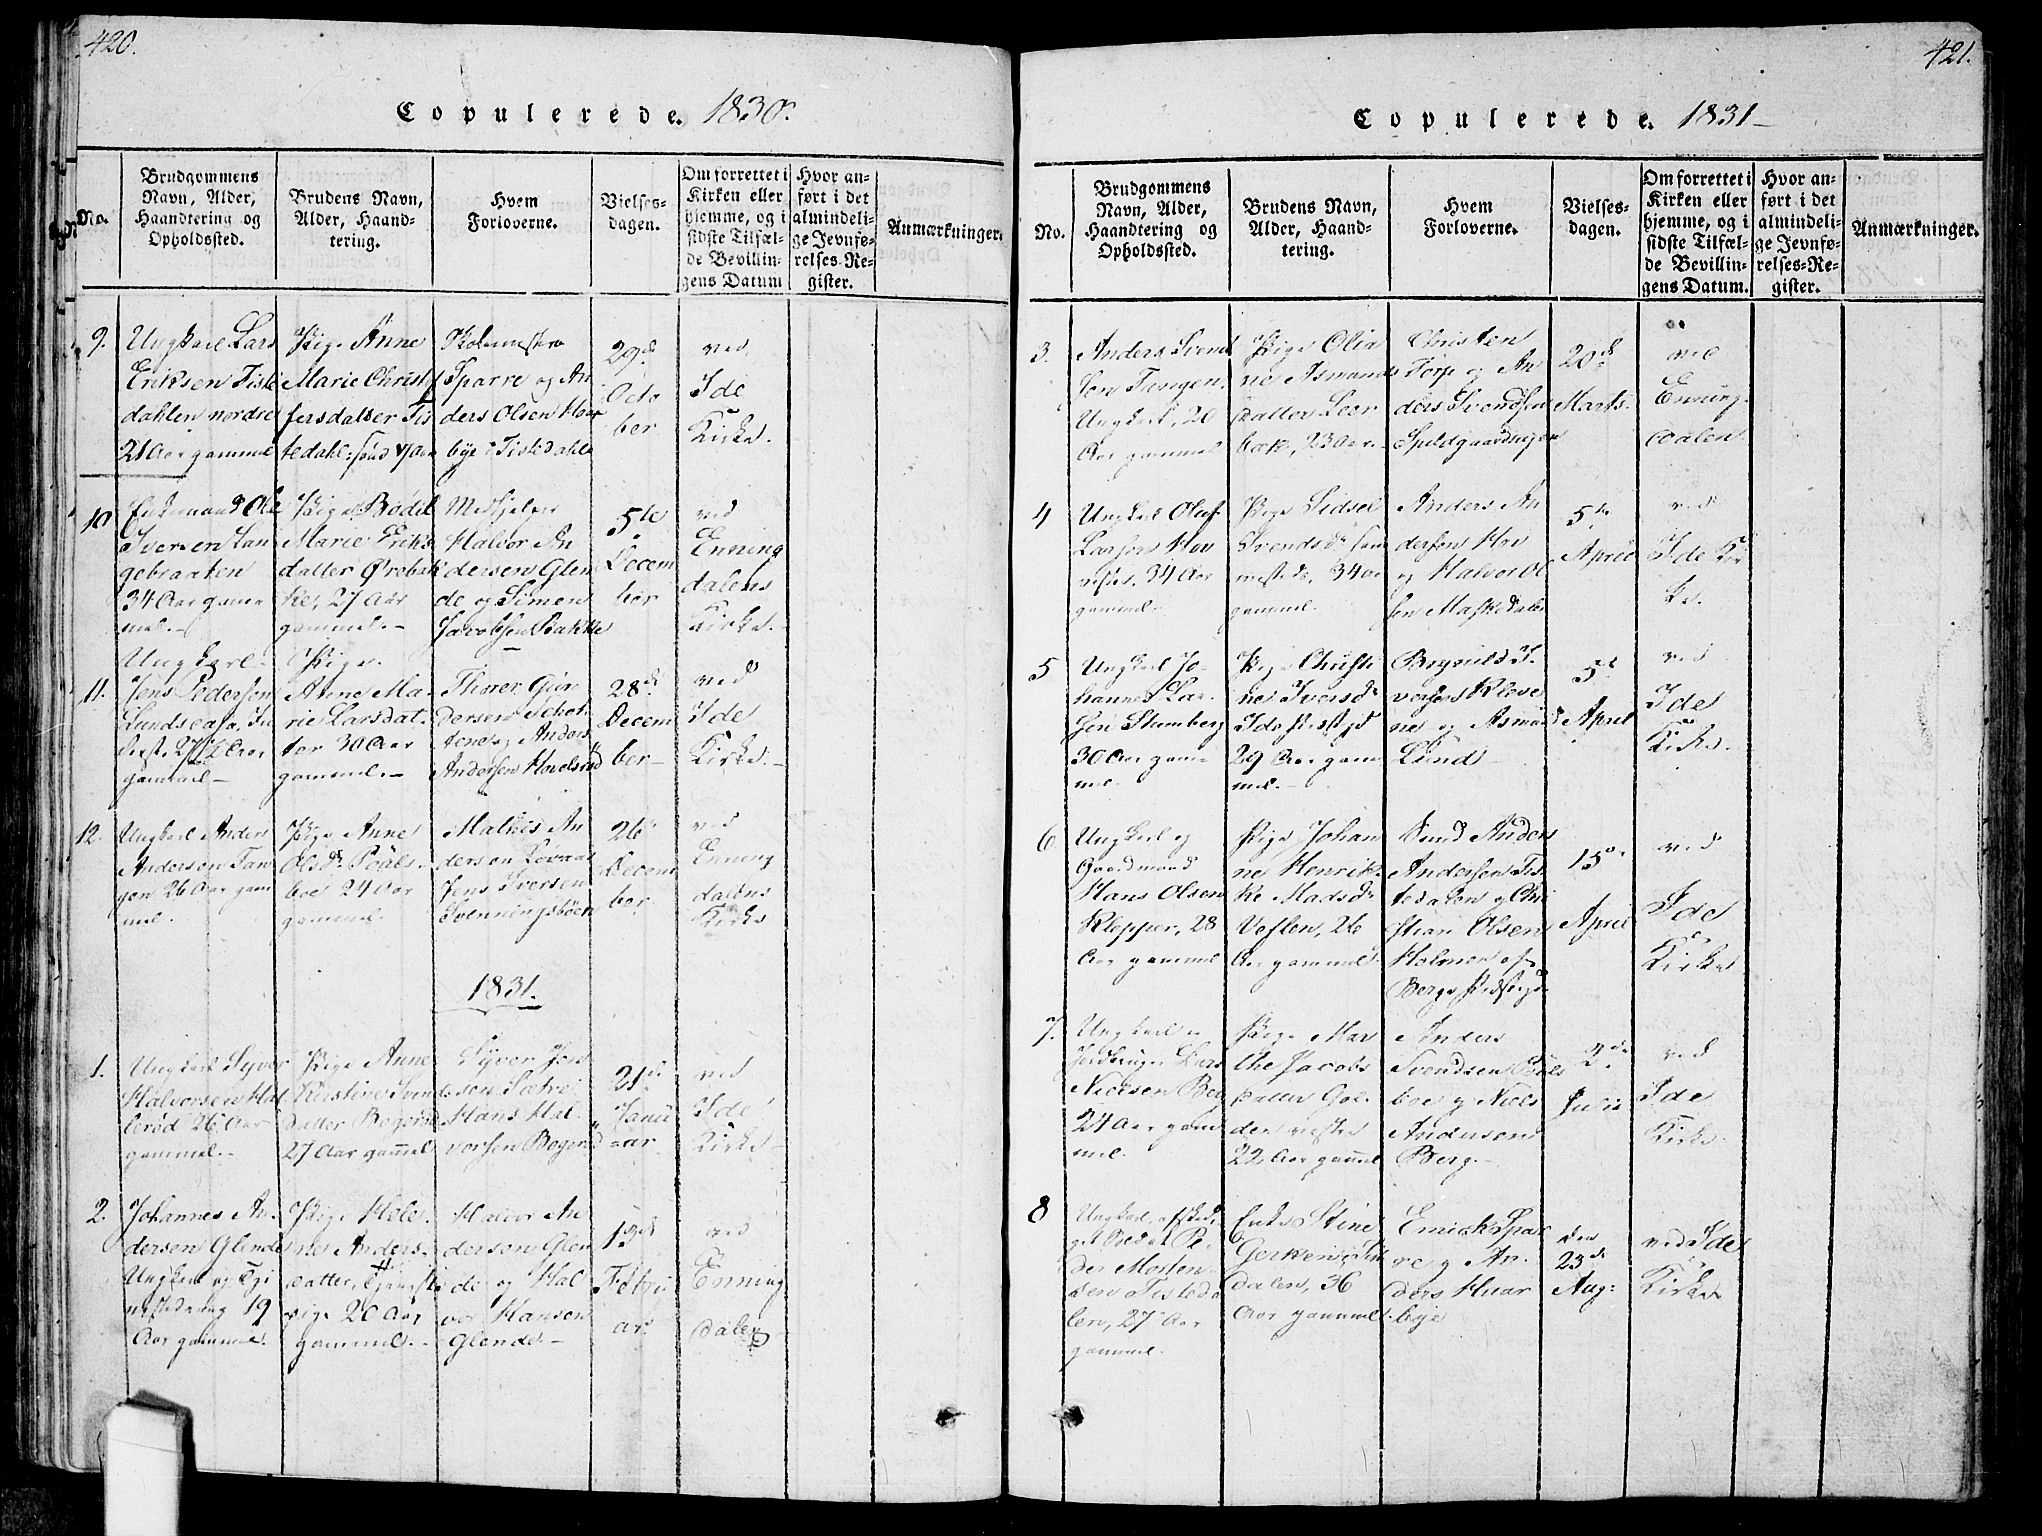 420.
Copulerede. 1830.
No.
Brudgommens
Navn, Alder,
Haandtering og
Opholdssted.
Brudens Navn,
Alder, Haand-
tering.
Hvem
Forloverne.
Vielses-
dagen.
Om forrettet i
Kirken eller
hjemme, og i
sidste Tilfæl-
de Bevillin-
gens Datum
Hvor an-
ført i det
almindeli-
ge Jevnfø-
relses-Re-
gister.
Anmærkninger.
9.
Ungkarl Lars
Eriksen Tiste
dahlen nordre
21 Aar gammel
Pige Anne
Marie Christ
fersdatter Tis
tedahl
Skolemester
Sparre og An
ders Olsen Haar
bye i Tistedahle
29de
Octo
ber
ved
Ide
Kirke.
10
Enkemand Ole
Iversen Lan
gebraaten
34 Aar gam
mel.-
Pige Bodil
Marie Eriks
datter Ørebak
ke, 27 Aar
gammel.-
Medhjelper
Halvor An
dersen Glen
de og Simen
Jacobsen Bakke
5te
Decem
ber
ved
Enning
dalens
Kirke.-
11.
Ungkarl
Jens Pedersen
Lundseasa,
27½ Aar
gammel-
Pige
Anne Ma-
rie Larsdat-
ter 30 Aar
gammel.-
Thorer Gun
dersen
og Anders
Andersen
28de
Decem
ber-
ved
Ide
Kirke.-
12.
Ungkarl Anders
Andersen Tan
gen 26 Aar gam
mel.
Pige Anne
Olsdr Pouls-
boe 24 Aar
gammel.
Mathis An
dersen
Jens Iversen
Svenningsbøen
26
Decem
ber
ved
Enning
dalens
Kirke
1831.
1.
Ungkarl Syver
Halvorsen Hal
lerød 26 Aar
gammel.-
Pige Anne
Kirstine Svends
datter
27 Aar gammel
Syver Jens
sen
Hans Hal
vorsen
21de
Janu
ar
ved
Ide
Kirke-
2.
Johannes An-
dersen Glende
Ungkarl og
19
Aar gammel.
Pige Hele
ne Anders-
datter,
20 Aar
gammel.-
Halvor An
dersen Glen
de og Hal
vor Hansen
Glende.-
13de
Febru
ar
ved
Enning
dalen
421.
Copulerede. 1831-
No.
Brudgommens
Navn, Alder,
Haandtering og
Opholdssted.
Brudens Navn,
Alder, Haand-
tering.
Hvem
Forloverne.
Vielses-
dagen.
Om forrettet i
Kirken eller
hjemme, og i
sidste Tilfæl-
de Bevillin-
gens Datum.
Hvor an-
ført i det
almindeli-
ge Jevnfø-
relses-Re-
gister.
Anmærkninger.
3.
Anders Svend
sen Tangen,
Ungkarl, 20
Aar gammel
Pige Olia
ne Asmunds
datter Leer
bak, 23 Aar.-
Christen
Torp og An
ders Svendsen
20de
Marts.
ved
Enning-
dalen
4
Ungkarl Oluf
Larsen Hov
34 Aar
gammel.-
Pige Sidsel
Svendsdr
34 Aar
gammel.
Anders An
dersen Hov
og Halvor Ol
sen
5te
April
ved
Ide Kir
ke.
5
Ungkarl Jo-
hannes Lar-
sen Stumberg
30 Aar gam-
mel.
Pige Christi
ne Iversdr
Ide Præstegd
29 Aar gam
mel.-
I-
versen Kleve
ne og Asmund
Lund-
5te
April
ved
Ide
Kirke.
6
Ungkarl og
Gaardmand
Hans Olsen
Klepper, 28
Aar gammel
Pige Johan
ne Henrik-
ke Madsdr
Veflen, 26
Aar gammel.
Anders
Andersen Tis-
tedalen og Chri
stian Olsen
Holmen af
Bergs Præstegjd
15de
April
ved
Ide
Kirke
7.
Ungkarl og
Lars
Nielsen Berg
24 Aar gam
mel.
Pige Mar
the Jacobs
datter Gol-
den vestre
22 Aar gammel
Anders
Svendsen Pouls
boe og Niels
Andersen
Berg.-
2de
Julii
ved
Ide
Kirke.
8
Ungkarl, afske-
get Soldat Pe-
der Morten-
sen Tisteda
len, 27 Aar
gammel.
Enke Stine
Gerken, Tiste
dalen, 36
Aar gammel.
Emich Spar
re og An-
ders Haar
bye
den
23de
Aug:
ved Ide
Kirke